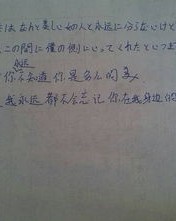 は、なんと美しい女の人と永遠に会えないけど
、この間に僕の側にいってくれたといつま
永远
你不知道 你是多么的美
我永远 都不会忘记 你在我身边的